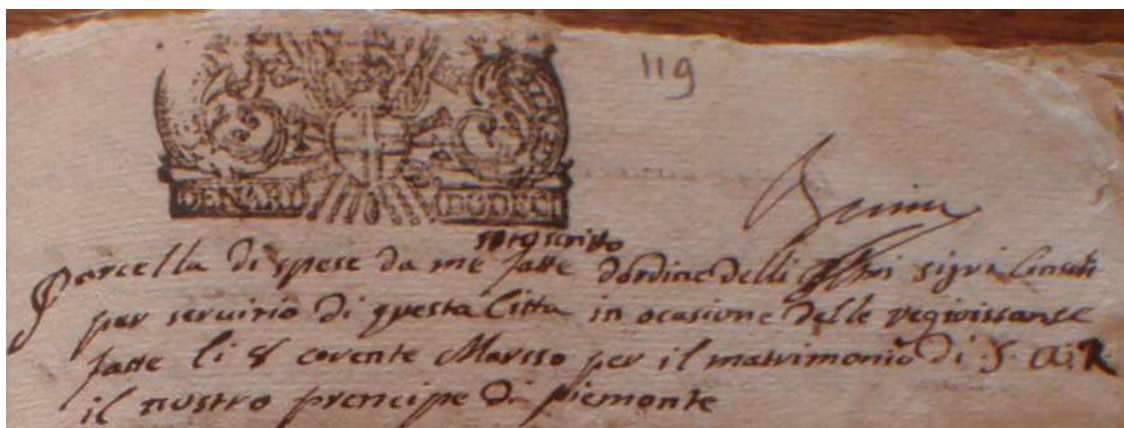 119
DENARI DODECI
sotoscritto
Parcella di spese da me fatte d'ordine delli sigri Consoli
per servirio di questa Citta in ocasione delle regioissanse
fatte li 8 corente Marsso per il matrimonio di S. A. R
il nostro prencipe di piemonte